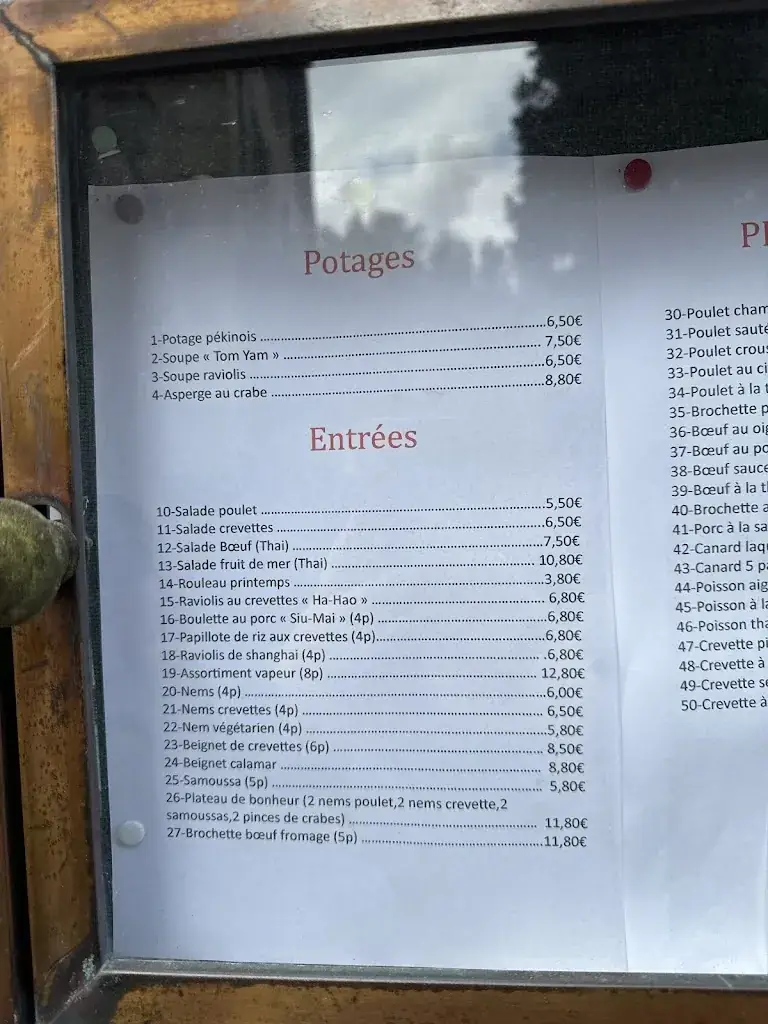 Potages
1-Potage pékinois ........ 6,50€
2-Soupe « Tom Yam » ........ 7,50€
3-Soupe raviolis ........ 6,50€
4-Asperge au crabe ........ 8,80€
Entrées
10-Salade poulet ........ 5,50€
11-Salade crevettes ........ 6,50€
12-Salade Bœuf (Thai) ........ 7,50€
13-Salade fruit de mer (Thai) ........ 10,80€
14-Rouleau printemps ........ 3,80€
15-Raviolis au crevettes « Ha-Hao » ........ 6,80€
16-Boulette au porc « Siu-Mai » (4p) ........ 6,80€
17-Papillote de riz aux crevettes (4p) ........ 6,80€
18-Raviolis de shanghai (4p) ........ 6,80€
19-Assortiment vapeur (8p) ........ 12,80€
20-Nems (4p) ........ 6,00€
21-Nems crevettes (4p) ........ 6,50€
22-Nem végétarien (4p) ........ 5,80€
23-Beignet de crevettes (6p) ........ 8,50€
24-Beignet calamar ........ 8,80€
25-Samoussa (5p) ........ 5,80€
26-Plateau de bonheur (2 nems poulet,2 nems crevette,2
samoussas,2 pinces de crabes) ........ 11,80€
27-Brochette bœuf fromage (5p) ........ 11,80€
30-Poulet
31-Poulet
32-Poulet
33-Poulet au
34-Poulet à la
35-Brochette
36-Bœuf au
37-Bœuf au
38-Bœuf sauce
39-Bœuf à la
40-Brochette
41-Porc à la
42-Canard
43-Canard 5
44-Poisson
45-Poisson à
46-Poisson
47-Crevette
48-Crevette à
49-Crevette
50-Crevette à